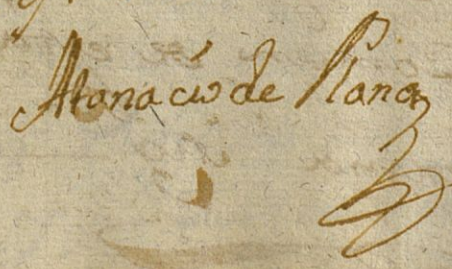 Atanacio de Llano